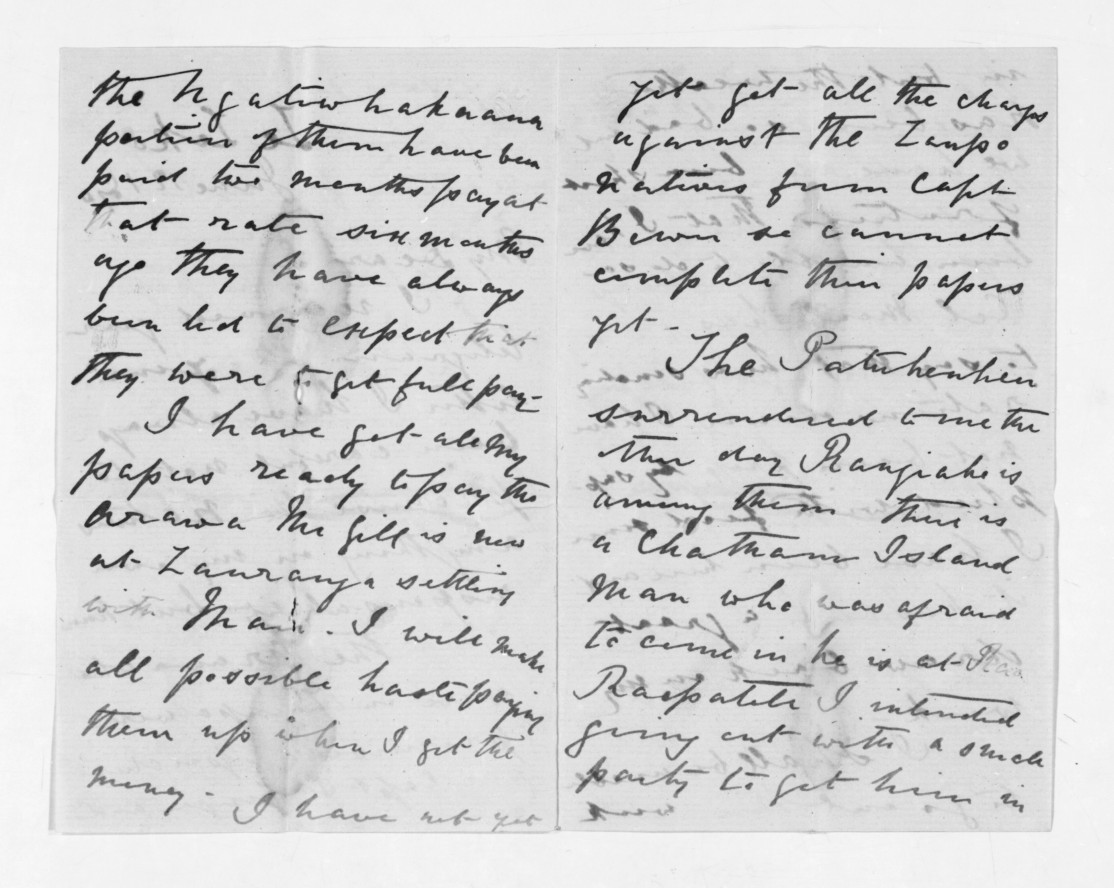 the Ngatiwhakaana
portion of them have been
paid two months pay at
that rate six months
ago they have always
been led to expect that
they were to get full pay-
I have got all my
papers ready to pay the
Arawa Mr Gill is now
at Tauranga settling
with Mair. I will make
all possible haste paying
them up when I get the
money - I have not yet
yet get all the charges
against the Taupo
natives from Capt
Bower so cannot
complete their papers
yet -
The Patuheuheu
surrendered to me the
other day Rangiahe is
among them there is
a Chatham Island
Man who was afraid
to come in he is at
I intended
going out with a small
party to get him in